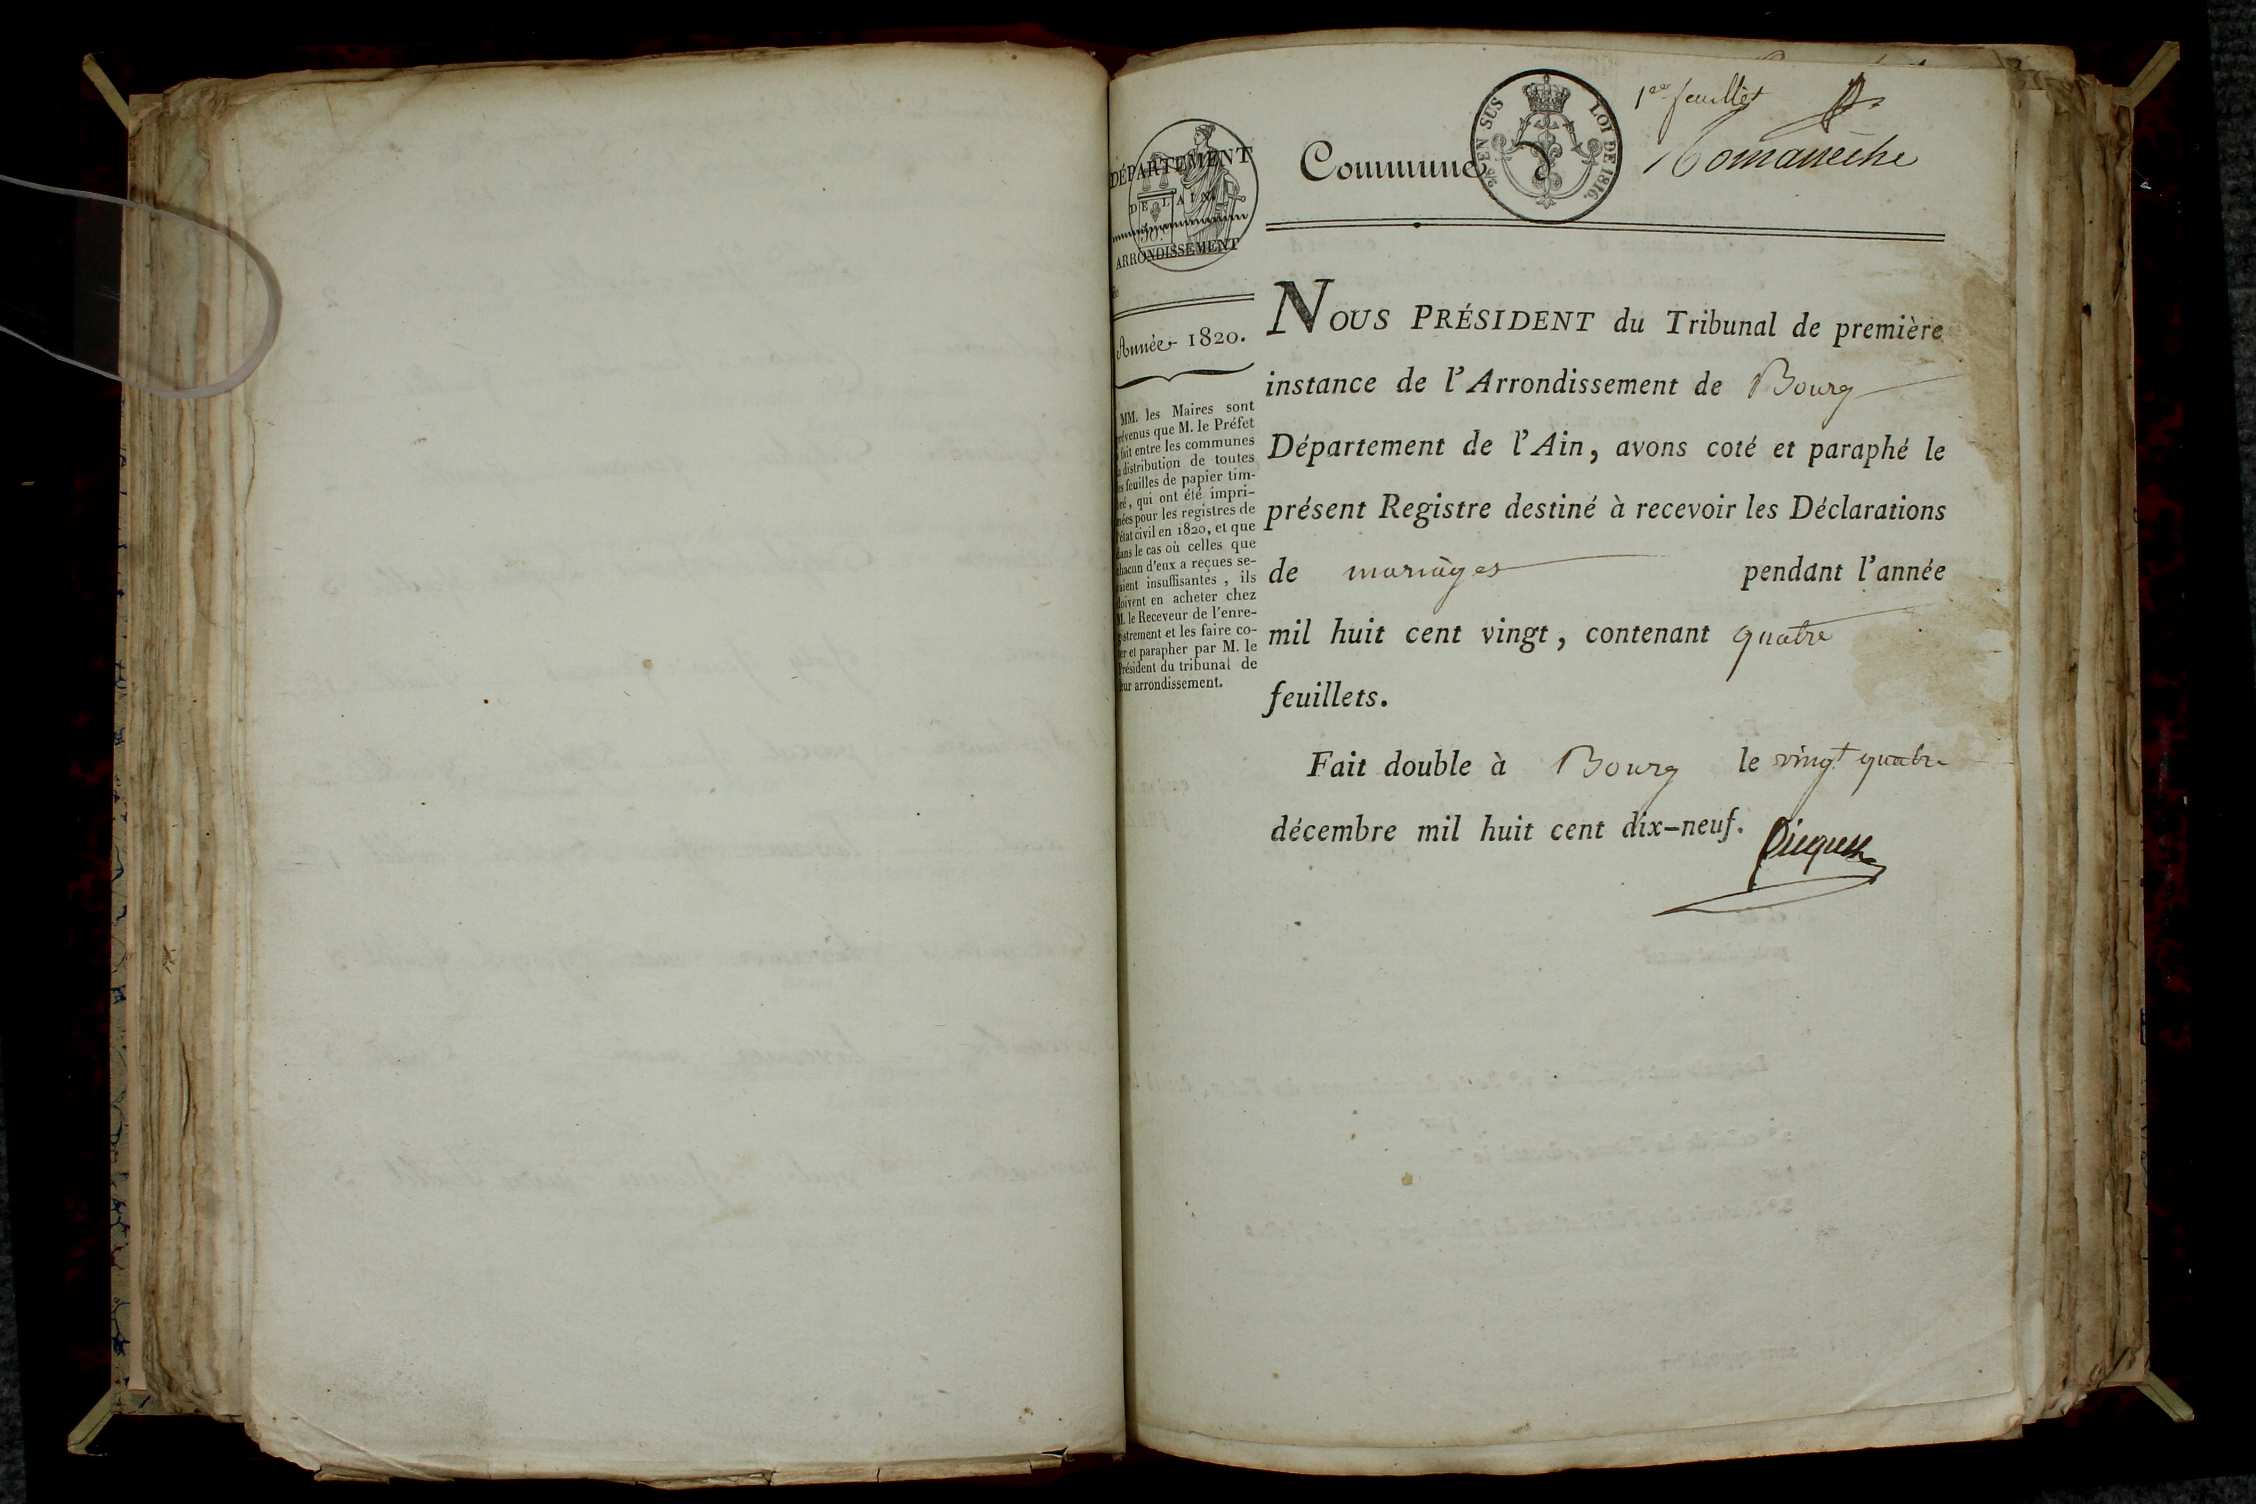 1er feuillet
2/5 EN SUS LOI DE 1816.
Commune de Romanèche
DÉPARTEMENT
DE L'AIN.
ARRONDISSEMENT
Année 1820.
MM. les Maires sont
prévenus que M. le Préfet
a fait entre les communes
la distribution de toutes
les feuilles de papier tim-
bré, qui ont été impri-
mées pour les registres de
l'état civil en 1820, et que
dans le cas où celles que
chacun d'eux a reçues se-
raient insuffisantes, ils
doivent en acheter chez
M. le Receveur de l'enre-
gistrement et les faire co-
ter et parapher par M. le
Président du tribunal de
leur arrondissement.
NOUS PRÉSIDENT du Tribunal de première
instance de l'Arrondissement de Bourg
Département de l'Ain, avons coté et paraphé le
présent Registre destiné à recevoir les Déclarations
de mariages pendant l'année
mil huit cent vingt, contenant quatre
feuillets.
Fait double à Bourg le vingt quatre
décembre mil huit cent dix-neuf.